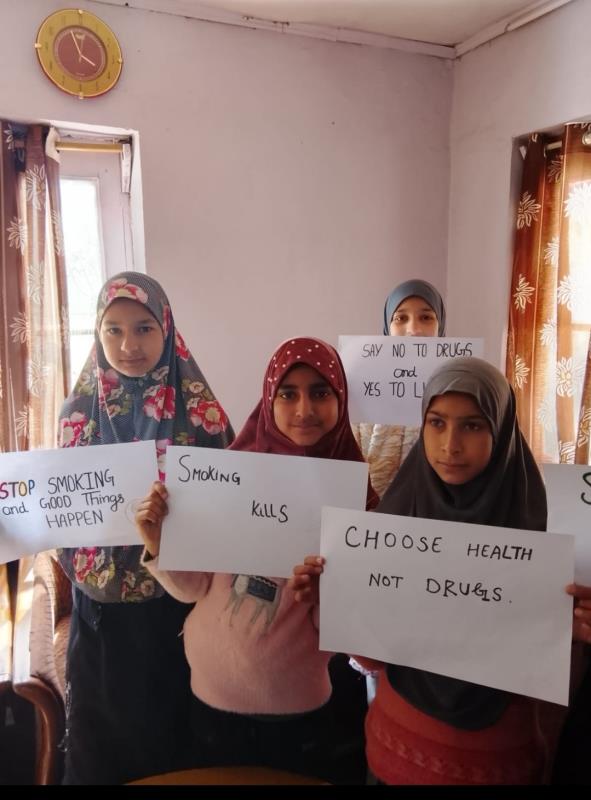 SAY NO TO DRUGS
and
YES TO
STOP SMOKING
and GOOD Things
HAPPEN
SMOKING
Kills
CHOOSE HEALTH
NOT DRUGS.